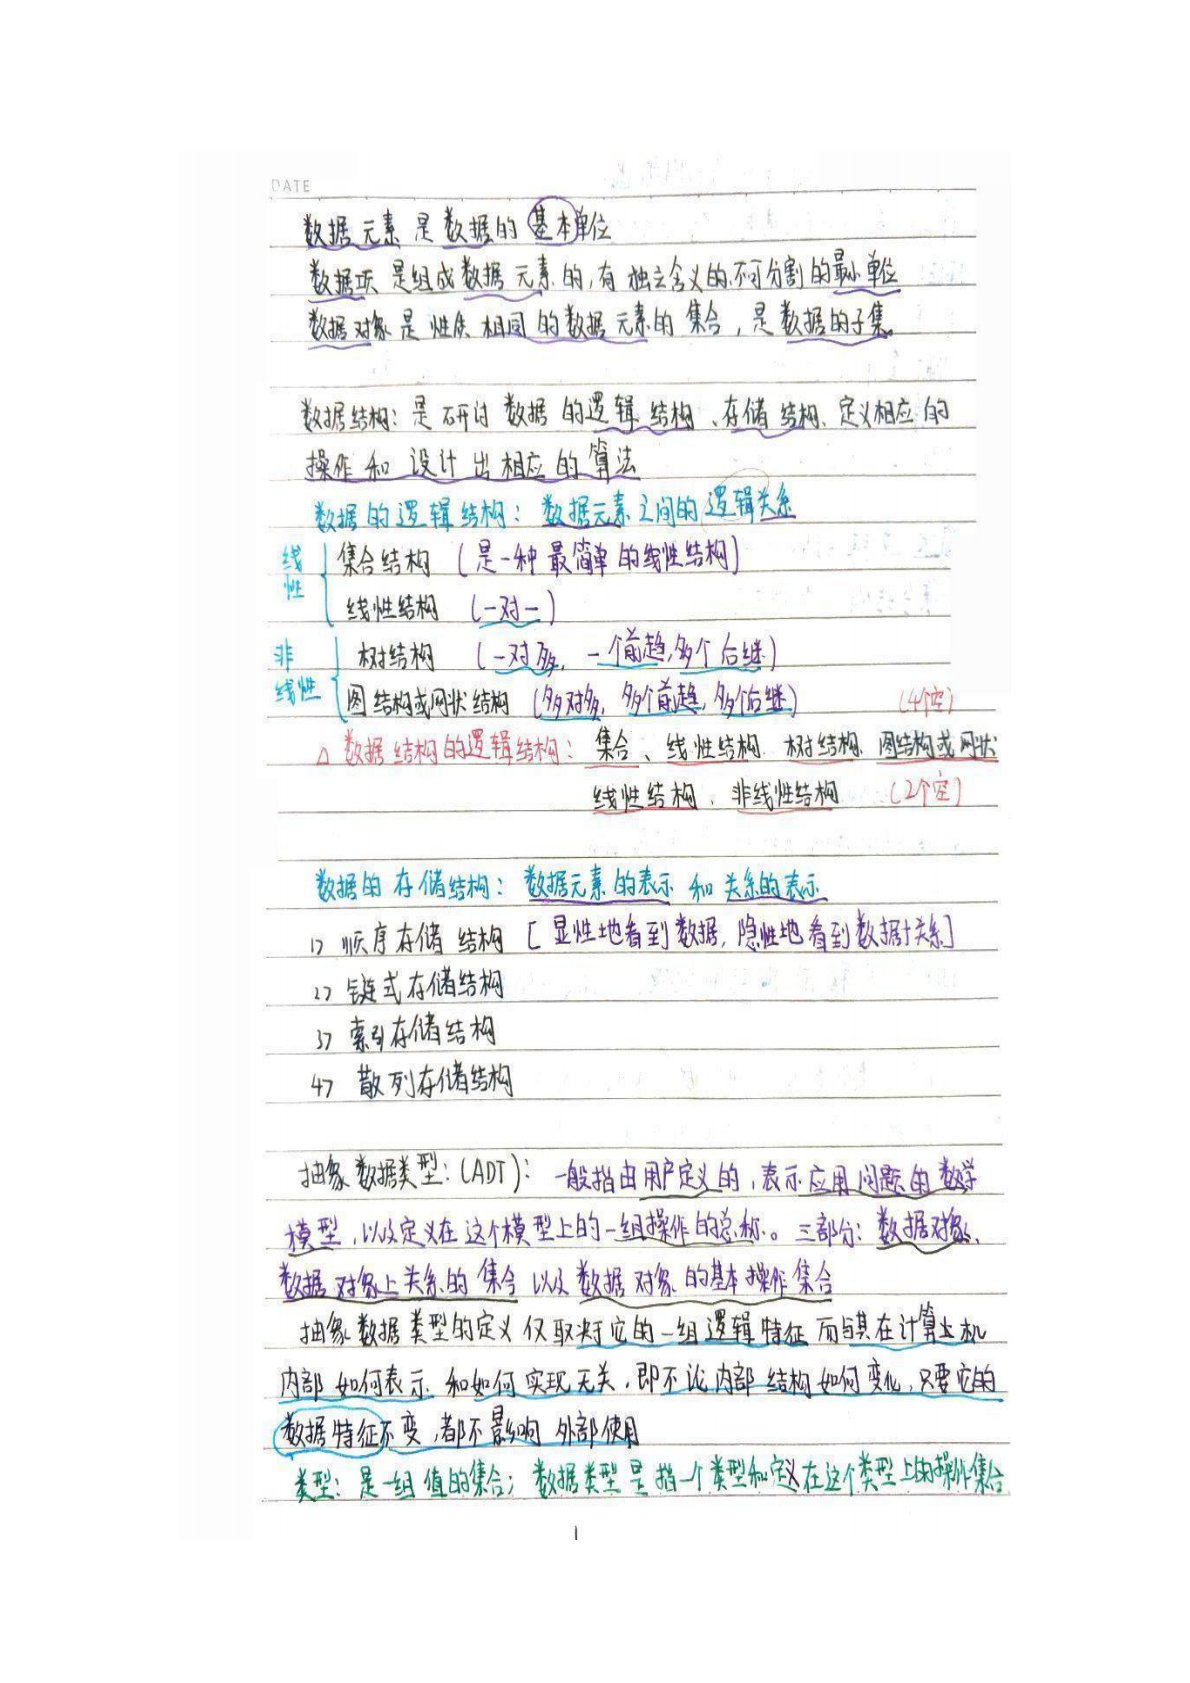 DATE
数据元素是数据的基本单位
数据项是组成数据元素的,有独立含义的不可分割的最小单位
数据对象是性质相同的数据元素的集合,是数据的子集
数据结构:是研讨数据的逻辑结构、存储结构、定义相应的
操作和设计出相应的算法
数据的逻辑结构:数据元素之间的逻辑关系
线性
集合结构 (是一种最简单的线性结构)
线性结构 (一对一)
非线性
树结构 (一对多,一个前趋,多个后继)
图结构或网状结构 (多对多,多个前趋,多个后继) (4个空)
△数据结构的逻辑结构:集合、线性结构、树结构、图结构或网状
线性结构、非线性结构 (2个空)
数据的存储结构:数据元素的表示和关系的表示
1> 顺序存储结构 [显性地看到数据,隐性地看到数据关系]
2> 链式存储结构
3> 索引存储结构
4> 散列存储结构
抽象数据类型:(ADT):一般指由用户定义的,表示应用问题的数学
模型,以及定义在这个模型上的一组操作的总称。三部分:数据对象、
数据对象上关系的集合以及数据对象的基本操作集合
抽象数据类型的定义仅取决于它的一组逻辑特征而与其在计算机
内部如何表示和如何实现无关,即不论内部结构如何变化,只要它的
数据特征不变,都不影响外部使用
类型:是一组值的集合;数据类型是指一个类型和定义在这个类型上的操作集合
1